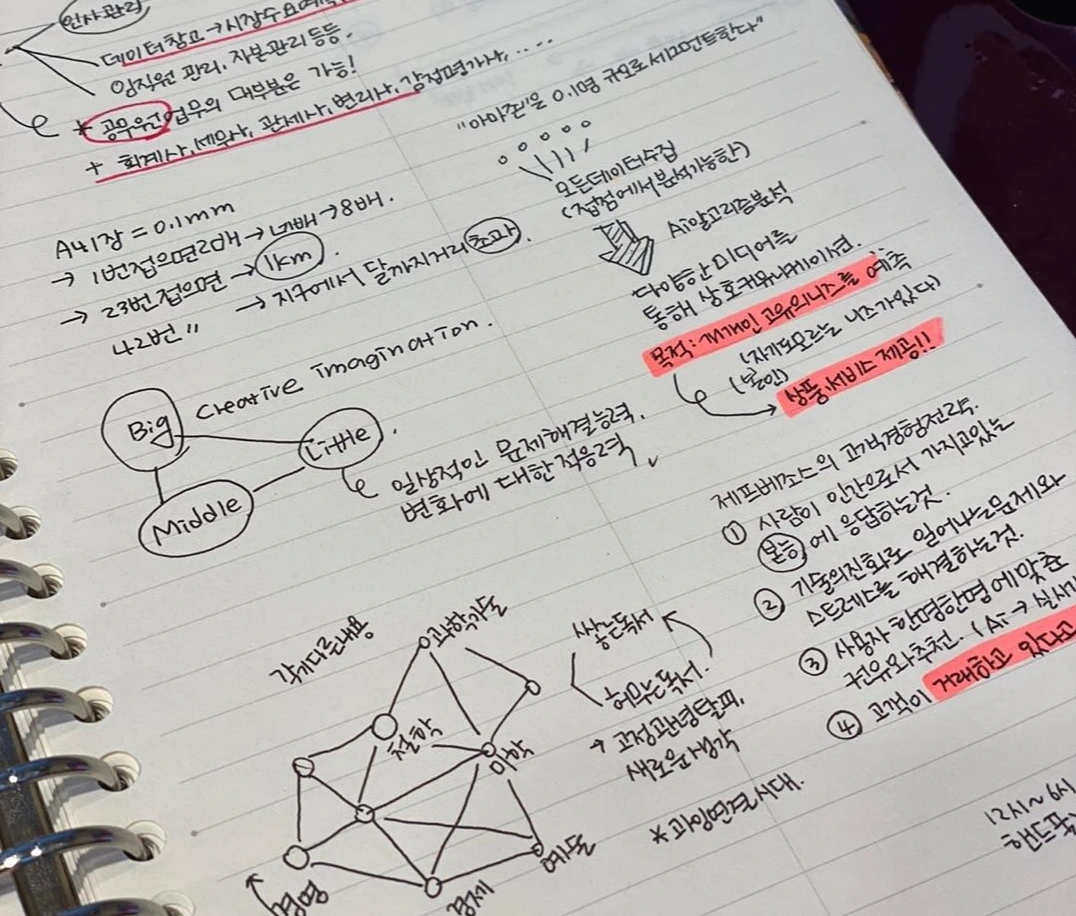 인사관리
데이터창고→시장수요예측
임직원 관리, 자본관리 등등.
* 공무원업무의 대부분은 가능!
+ 회계사, 세무사, 관세사, 변리사, 감정평가사, ....
A4 1장 = 0.1mm
→ 1번접으면2배 → 네배→8배.
→ 23번 접으면 → 1km.
42번 〃 → 지구에서 달까지거리 초과.
Creative imagination.
Big
Little.
Middle
일상적인 문제해결능력.
변화에 대한적응력
각기다른내용
과학기술
철학
미학
예술
경제
경영
쌓는독서
허무는독서.
→ 고정관념탈피,
새로운생각
* 과잉연결시대.
"아마존"은 0.1명 규모로 세그먼트한다"
모든데이터수집
(접점에서분석가능한)
Ai알고리즘분석
다양한 미디어를
통해 상호커뮤니케이션.
목적: 개개인 고유의니즈를 예측
(자기도모르는 니즈가있다)
(본인)
상품,서비스 제공!!
제프베조스의 고객경험전략.
① 사람이 인간으로서 가지고있는
본능에 응답하는것.
② 기술의진화로 일어나는문제와
스트레스를 해결하는것.
③ 사용자 한명한명에맞춘
권유와추천. (Ai →
④ 고객이 거래하고 있다고
12시~6시